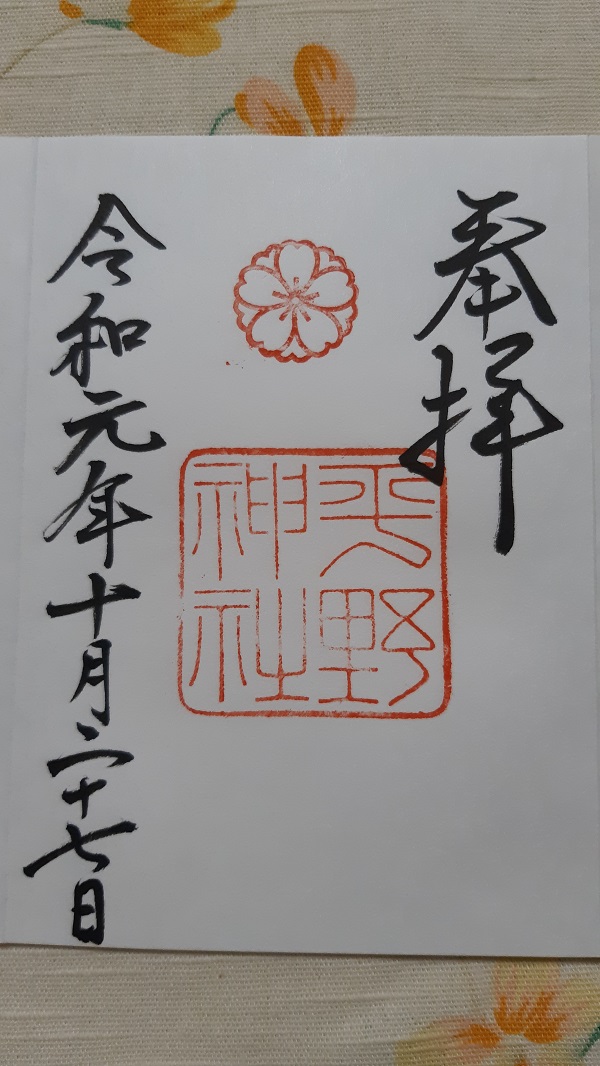 奉拝
平野
神社
令和元年十月二十七日